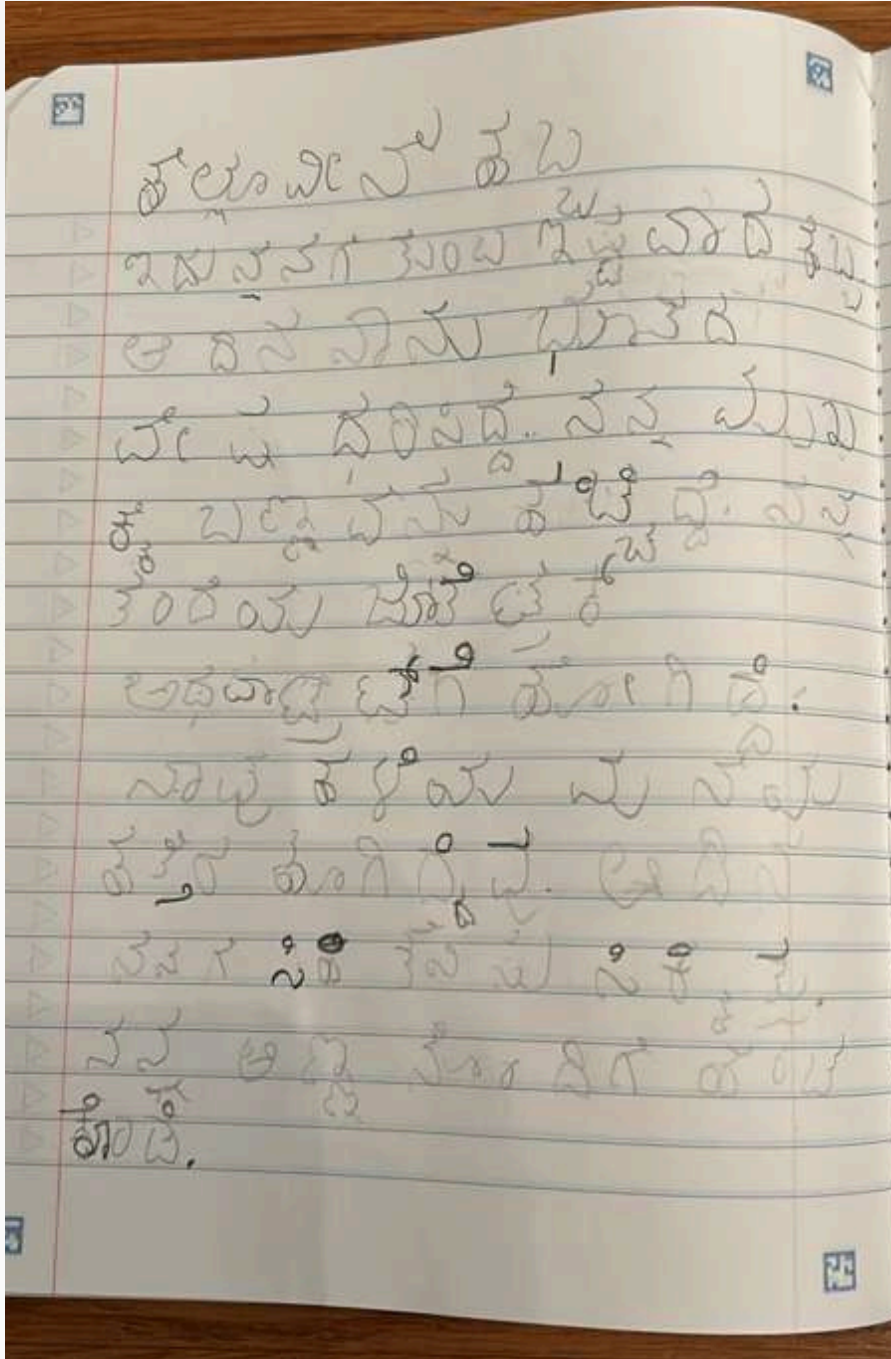 ಹಲ್ಲೂವೀನ್ ಹಬ
ಇದು ನನಗೆ ತುಂಬ ಇಷ್ಟವಾದ ಹಬ್ಬ
ಆ ದಿನ ನಾನು ಭೂತದ
ವೇಷ ಧರಿಸಿದ್ದೆ. ನನ್ನ ಮುಖ
ಕ್ಕೆ ಬಣ್ಣವನು ಹಚಿದ್ದೆ. ನನ್ನ
ತಂದೆಯ ಜೊತೆ
ಅಥವಾ ಹೋಗಿದ್ದೆ.
ನಾವು ಹಳೆಯ ಮನೆಯ
ಹತ್ತಿರ ಹೋಗಿದ್ದೆವು. ಆ ದಿನ
ನನಗೆ ಸಿಹಿ ಸಿಕ್ಕಿತ್ತು.
ನನ್ನ ಅಣ್ಣನೊಂದಿಗೆ ಹಂಚಿ
ಕೊಂಡೆ.